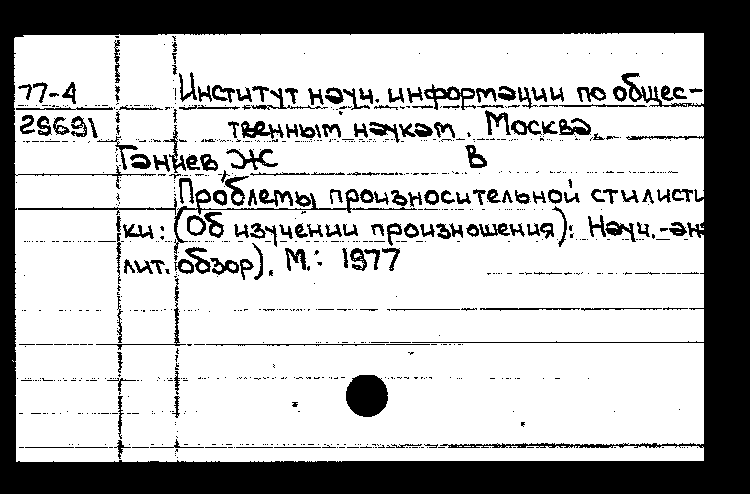 77-4 Институт науч. информации по общес-
29691 твенным наукам. Москва.
Ганиев Ж В
Проблемы произносительной стилисти
ки: (Об изучении произношения): Науч.-ан
лит. обзор). М.: 1977